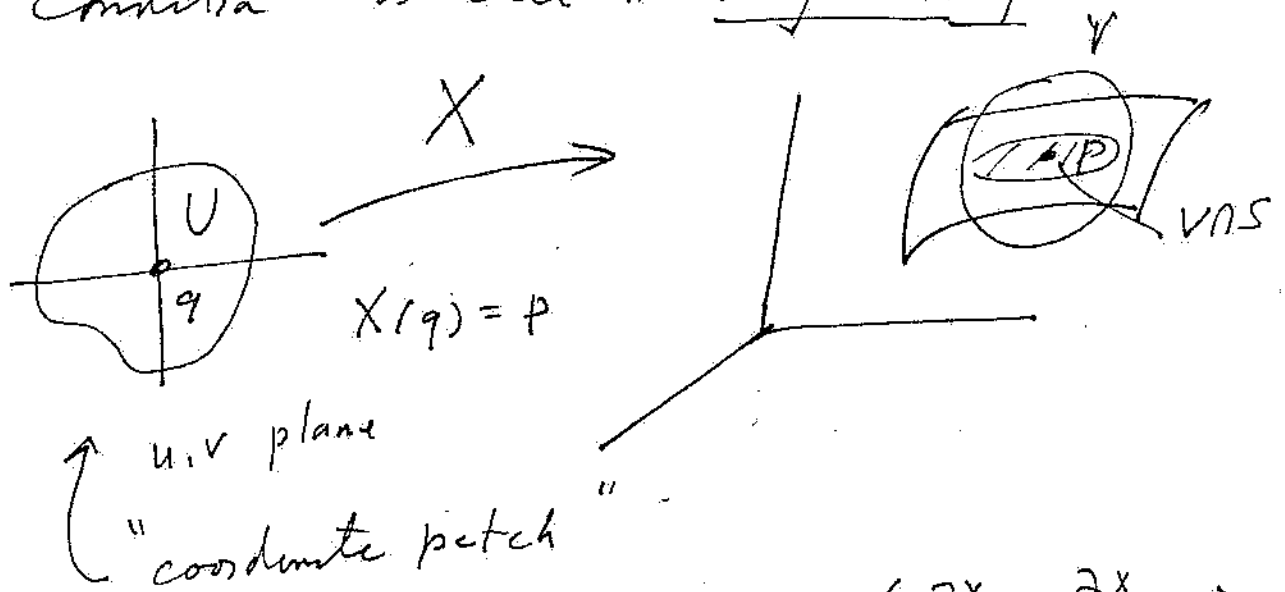 X
V
U
q
X(q) = p
P
V∩S
u,v plane
"coordinate patch"
∂x ∂x